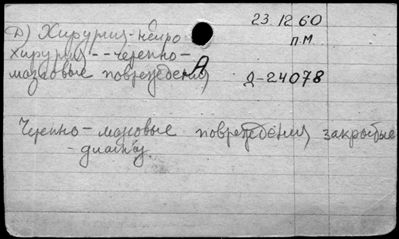 23.12.60
Д) Хирургия-нейро-
п.м.
хирургия--черепно-
мозговые повреждения
А
Д-24078
Черепно-мозговые повреждения закрытые